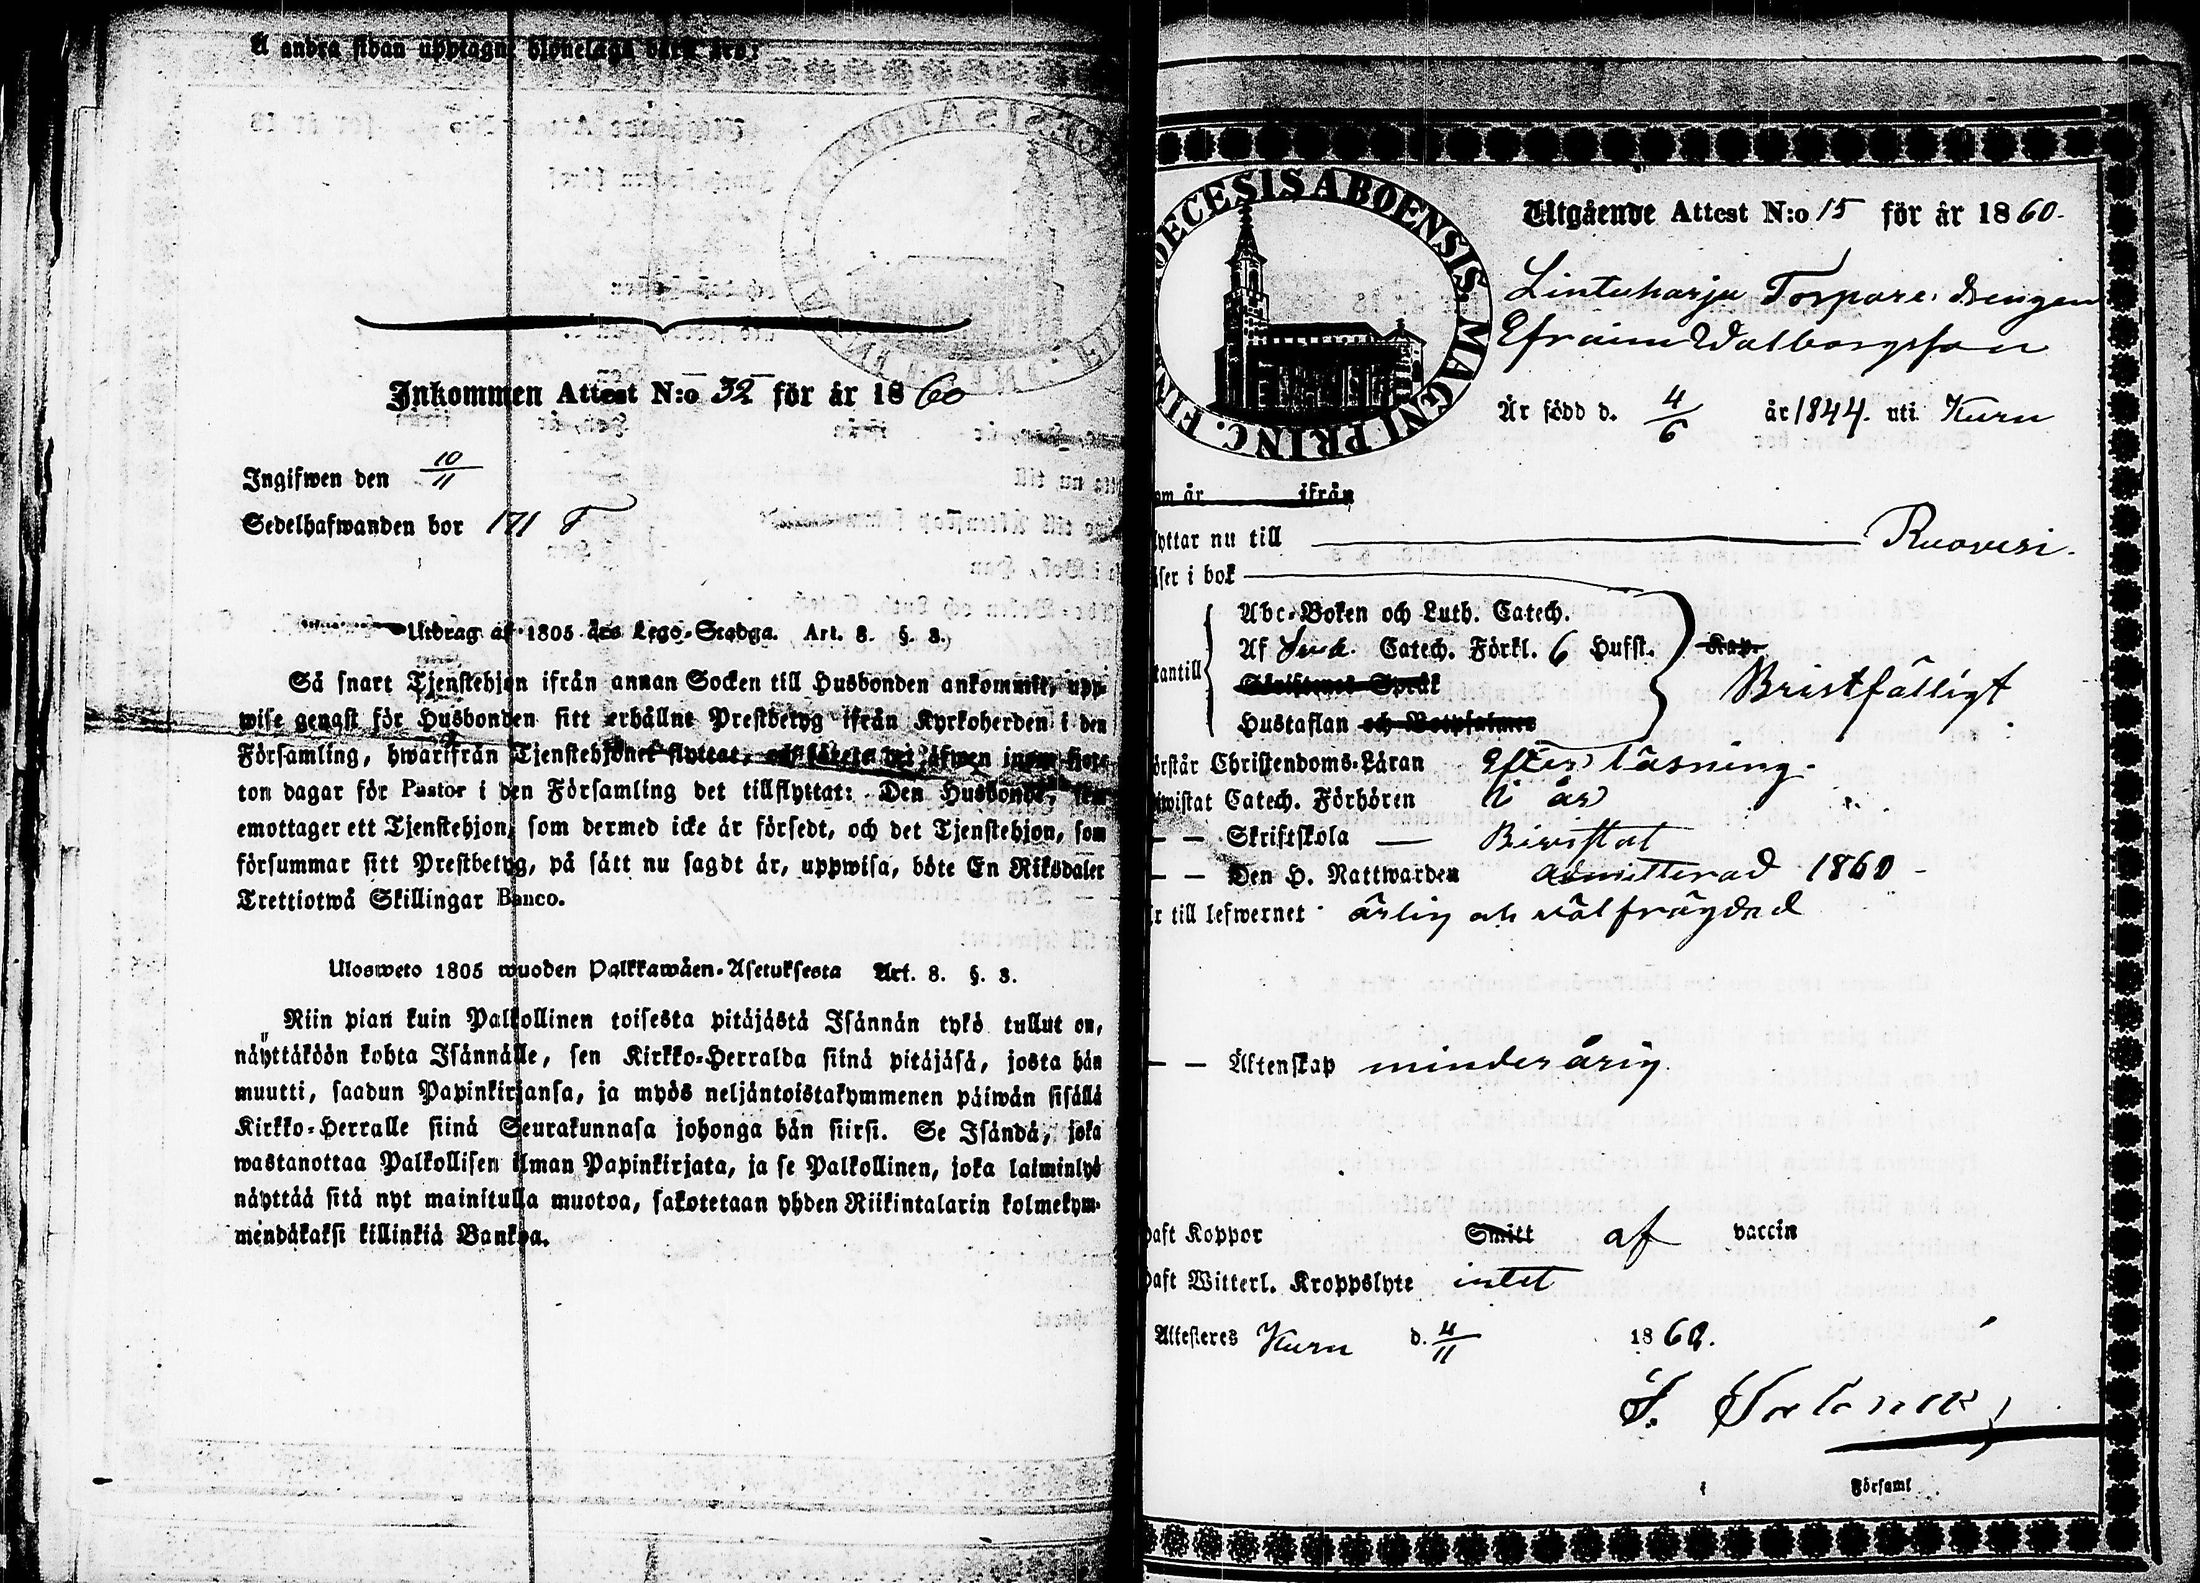 Å andra sidan upptagne
Inkommen Attest N:o 32 för år 1860
Ingifwen den 10/11
Sedelhafwanden bor 171 F
Utdrag af 1805 års Lego-Stadga. Art. 8. §. 3.
Så snart Tjenstehjon ifrån annan Socken till Husbonden ankommit, upp-
wise genast för Husbonden sitt erhållne Prestbetyg ifrån Kyrkoherden i den
Församling, hwarifrån Tjenstehjonet flyttat, och
ton dagar för Pastor i den Församling det tillflyttat: Den Husbonde, som
emottager ett Tjenstehjon, som dermed icke är försedt, och det Tjenstehjon, som
försummar sitt Prestbetyg, på sätt nu sagdt är, uppwisa, böte En Riksdaler
Trettiotwå Skillingar Banco.
Ulosweto 1805 wuoden Palkkawäen-Asetuksesta Art. 8. §. 3.
Niin pian kuin Palkollinen toisesta pitäjästä Isännän tykö tullut on,
näyttäköön kohta Isännälle, sen Kirkko-Herralda siinä pitäjäsä, josta hän
muutti, saadun Papinkirjansa, ja myös neljäntoistakymmenen päiwän sisällä
Kirkko-Herralle siinä Seurakunnasa johonga hän siirsi. Se Isändä, joka
wastanottaa Palkollisen ilman Papinkirjata, ja se Palkollinen, joka laiminlyö
näyttää sitä nyt mainitulla muotoa, sakotetaan yhden Riikintalarin kolmekym-
mendäkaksi killinkiä Bankoa.
DECESIS ABOENSIS. MAGNI PRINC. FIN
Utgående Attest N:o 15 för år 1860.
Lintuharju Torpare drengen
Efraim Walborgsson
Är född d. 4/6 år 1844. uti Kuru
om år ifrån
yttar nu till Ruovesi.
äser i bok
Abc-Boken och Luth. Catech.
Af Catech. Förkl. 6 Hufst. Kap.
tantill
Skriftenes Språk Bristfälligt
Hustaflan och Botpsalmer
örstår Christendoms-Läran Efter läsning.
iwistat Catech. Förhören i år
— — Skriftskola — Biwistat
— — Den H. Nattwarden admitterad 1860
r till lefwernet ärlig och välfrägdad
— — Äktenskap minderårig
haft Koppor Smitt af vaccin
haft Witterl. Kroppslyte intet
Attesteres Kuru d. 4/11 1860.
i Församl